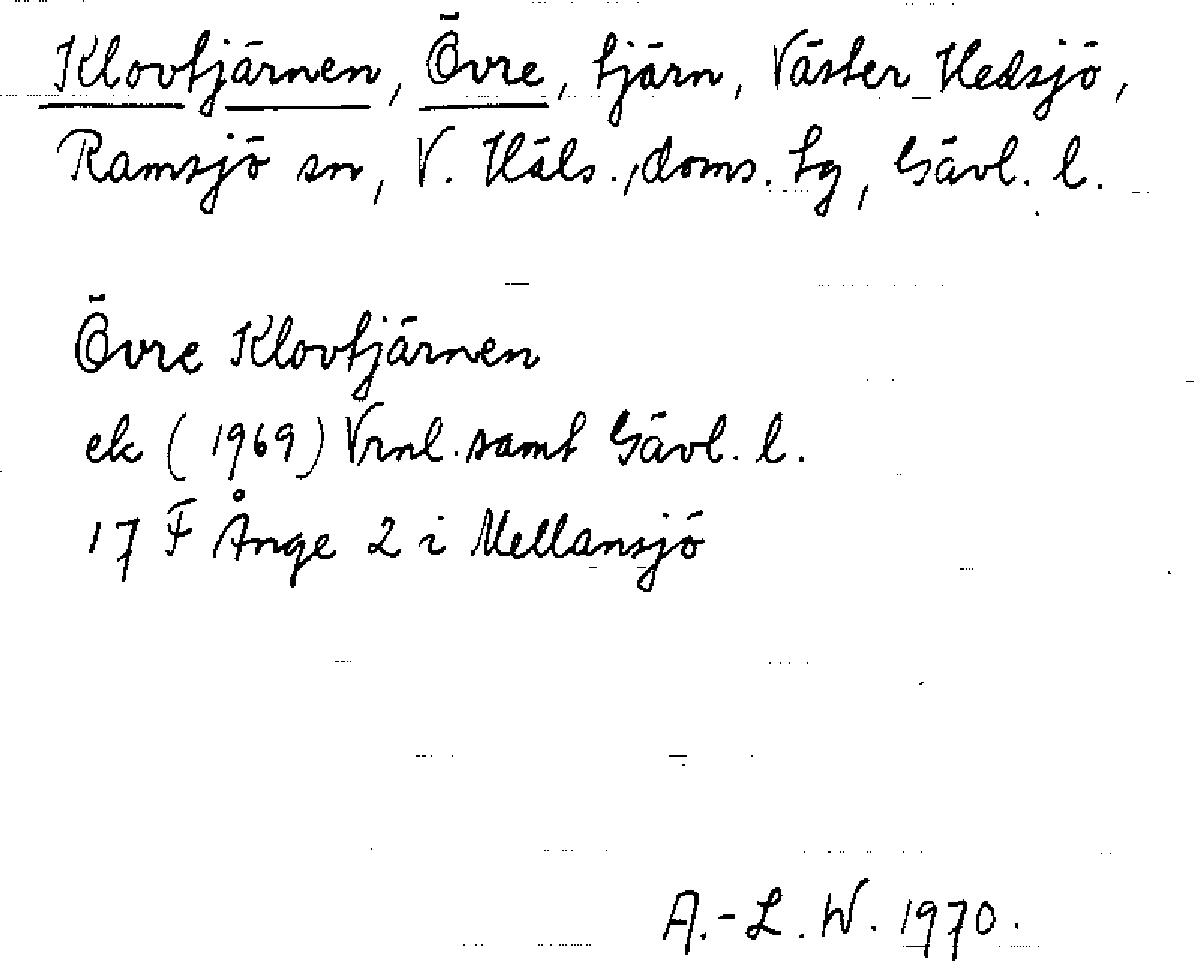 Klovtjärnen, Övre, tjärn, Väster Hedsjö,
Ramsjö sn, V. Häls., doms. tg, Gävl. l.
Övre Klovtjärnen
ek (1969) Vrnl. samt Gävl. l.
17 F Ånge 2 i Mellansjö
A.-L. W. 1970.